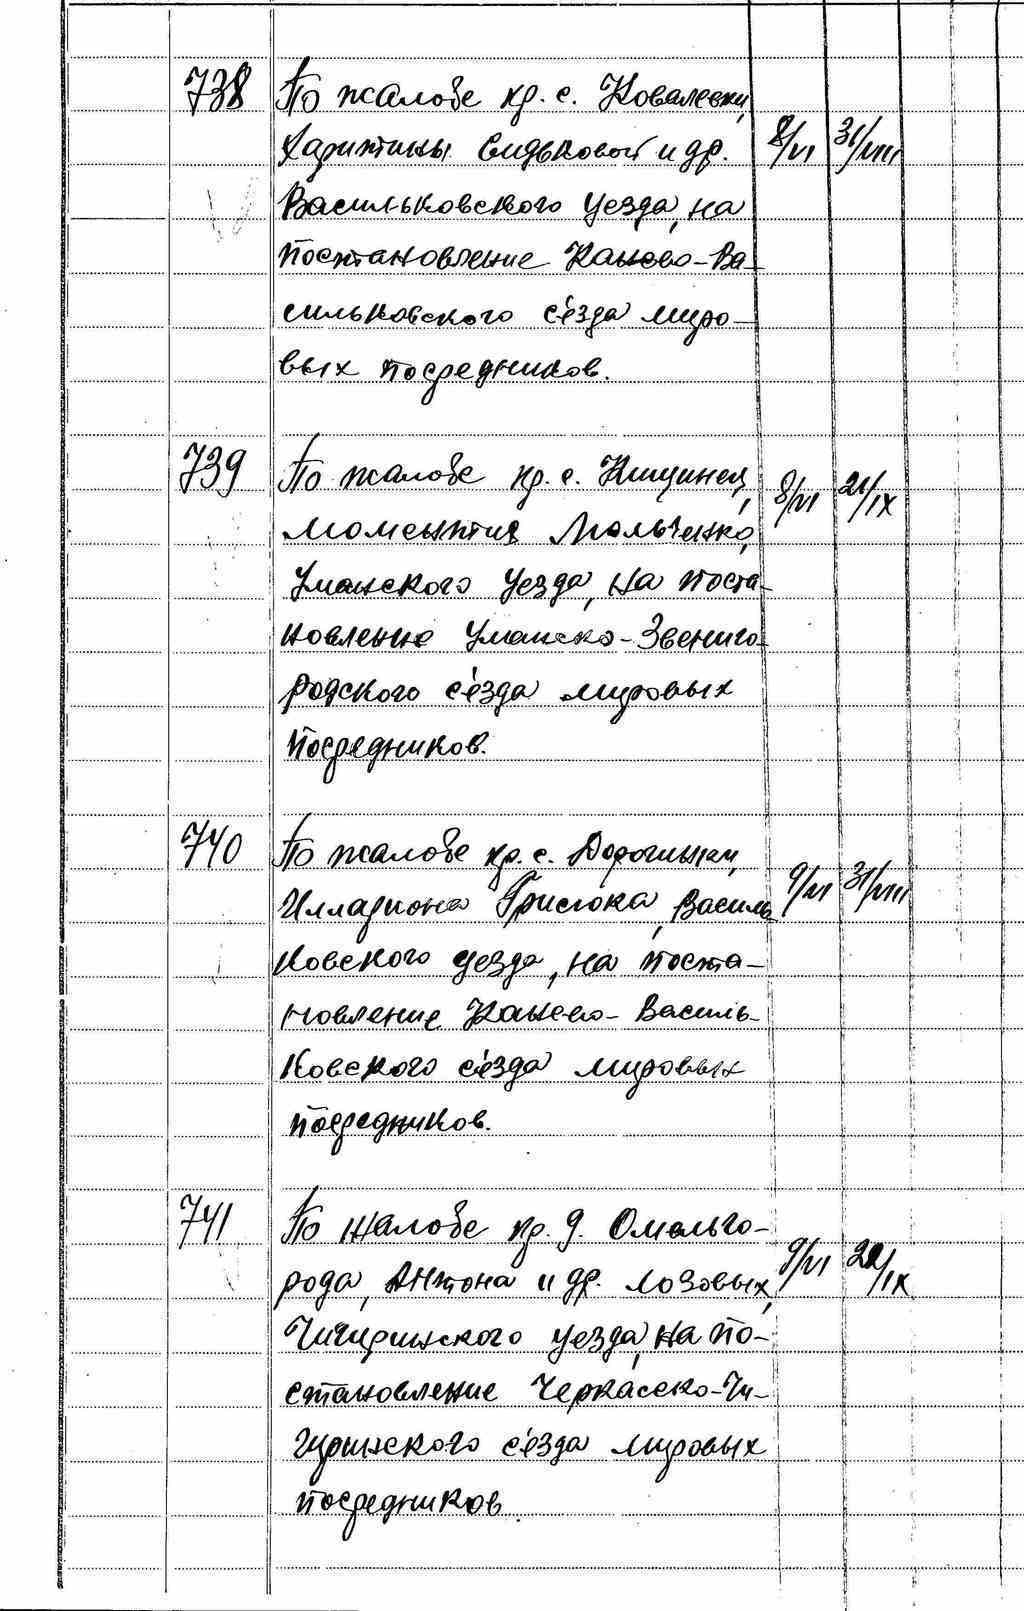 738 По жалобе кр. с. Ковалевки,
Харитины Сидьковой и др. 8/VI 31/VIII
Васильковского уезда, на
постановление Канево-Ва-
сильковского с'езда миро-
вых посредников.
739 По жалобе кр. с. Кищинец,
Моментия Мольченко, 8/VI 21/IX
Уманского уезда, на поста-
новление Уманско-Звениго-
родского с'езда мировых
посредников.
740 По жалобе кр. с. Дорогинки,
Иллариона Грисюка, Василь- 9/VI 31/VIII
ковского уезда, на поста-
новление Канево-Василь-
ковского с'езда мировых
посредников.
741 По жалобе кр. д. Омельго-
рода, Антона и др. Лозовых, 9/VI 22/IX
Чигиринского уезда, на по-
становление Черкасско-Чи-
гиринского с'езда мировых
посредников